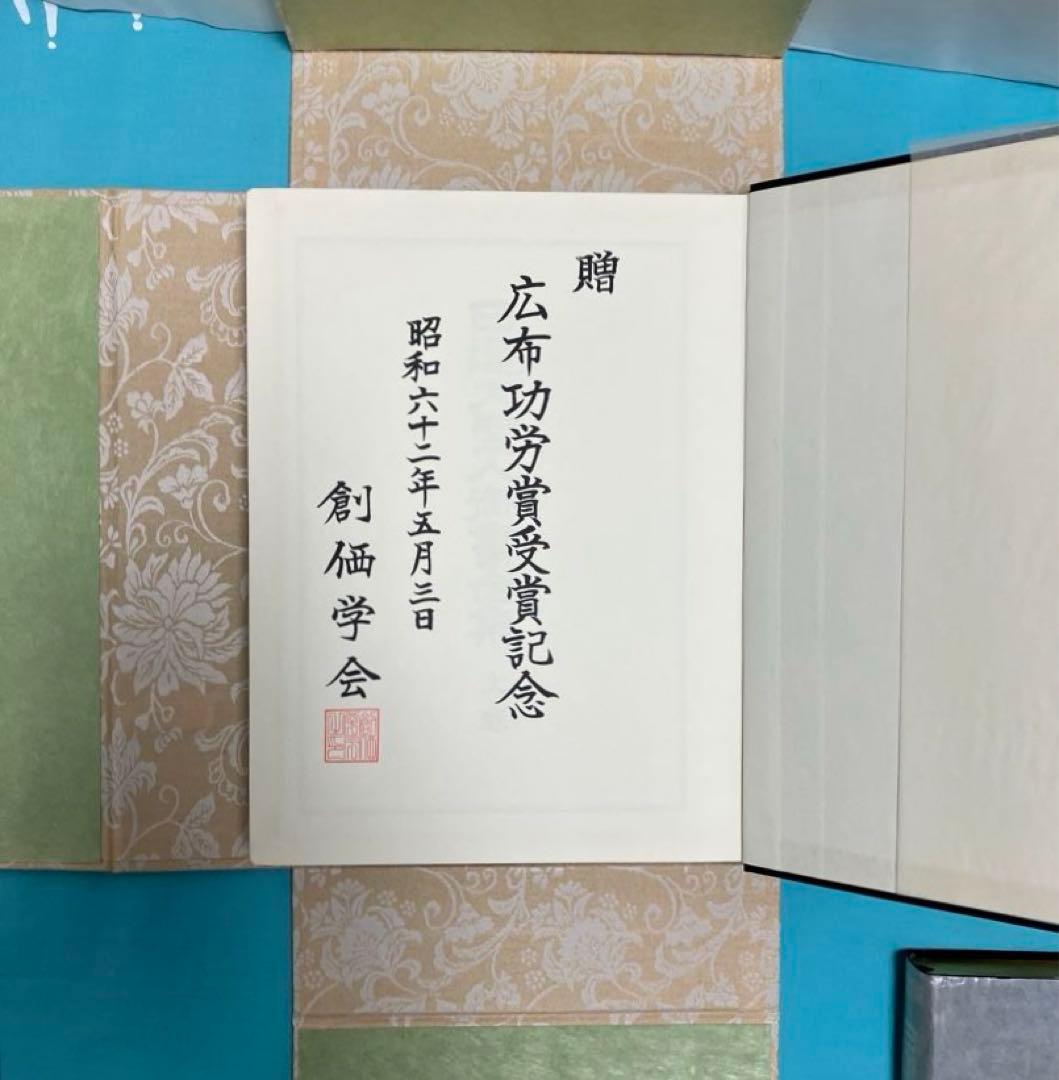 贈
広布功労賞受賞記念
昭和六十二年五月三日
創価学会